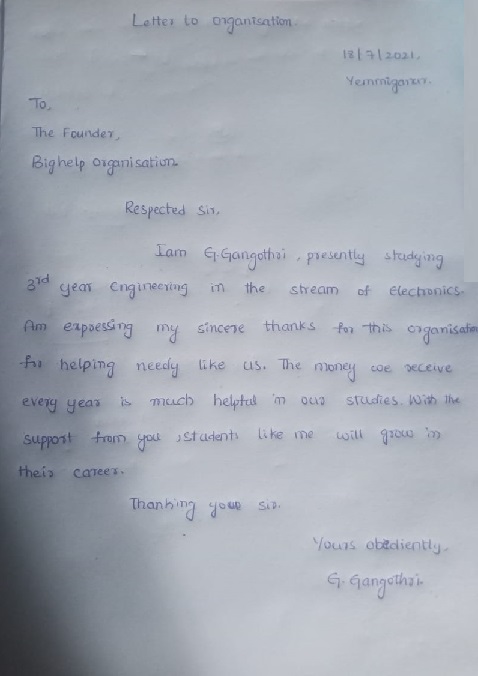 Letter to organisation.
18/7/2021.
Yemmiganur.
To,
The Founder,
Bighelp organisation.
Respected sir,
Iam G.Gangothri, presently studying
3rd year engineering in the stream of electronics.
Am expressing my sincere thanks for this organisation
for helping needy like us. The money we receive
every year is much helpful in our studies. With the
support from you, students like me will grow in
their career.
Thanking your sir.
Yours obediently,
G. Gangothri.